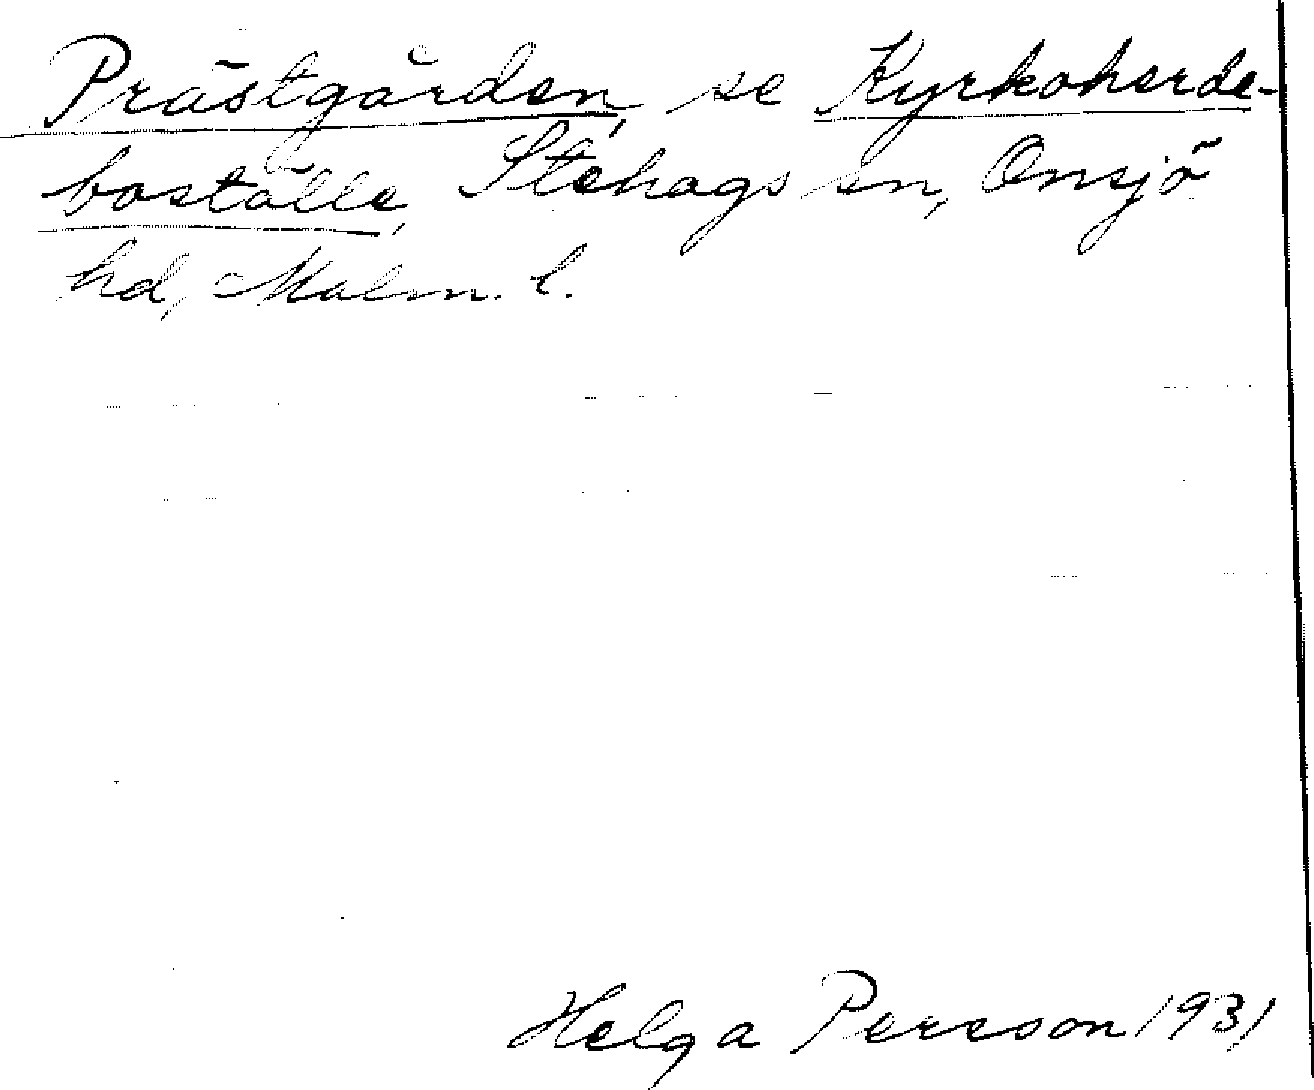 Prästgården, se Kyrkoherde-
boställe, Stehags sn, Onsjö
hd, Malm. l.
Helga Persson 1931